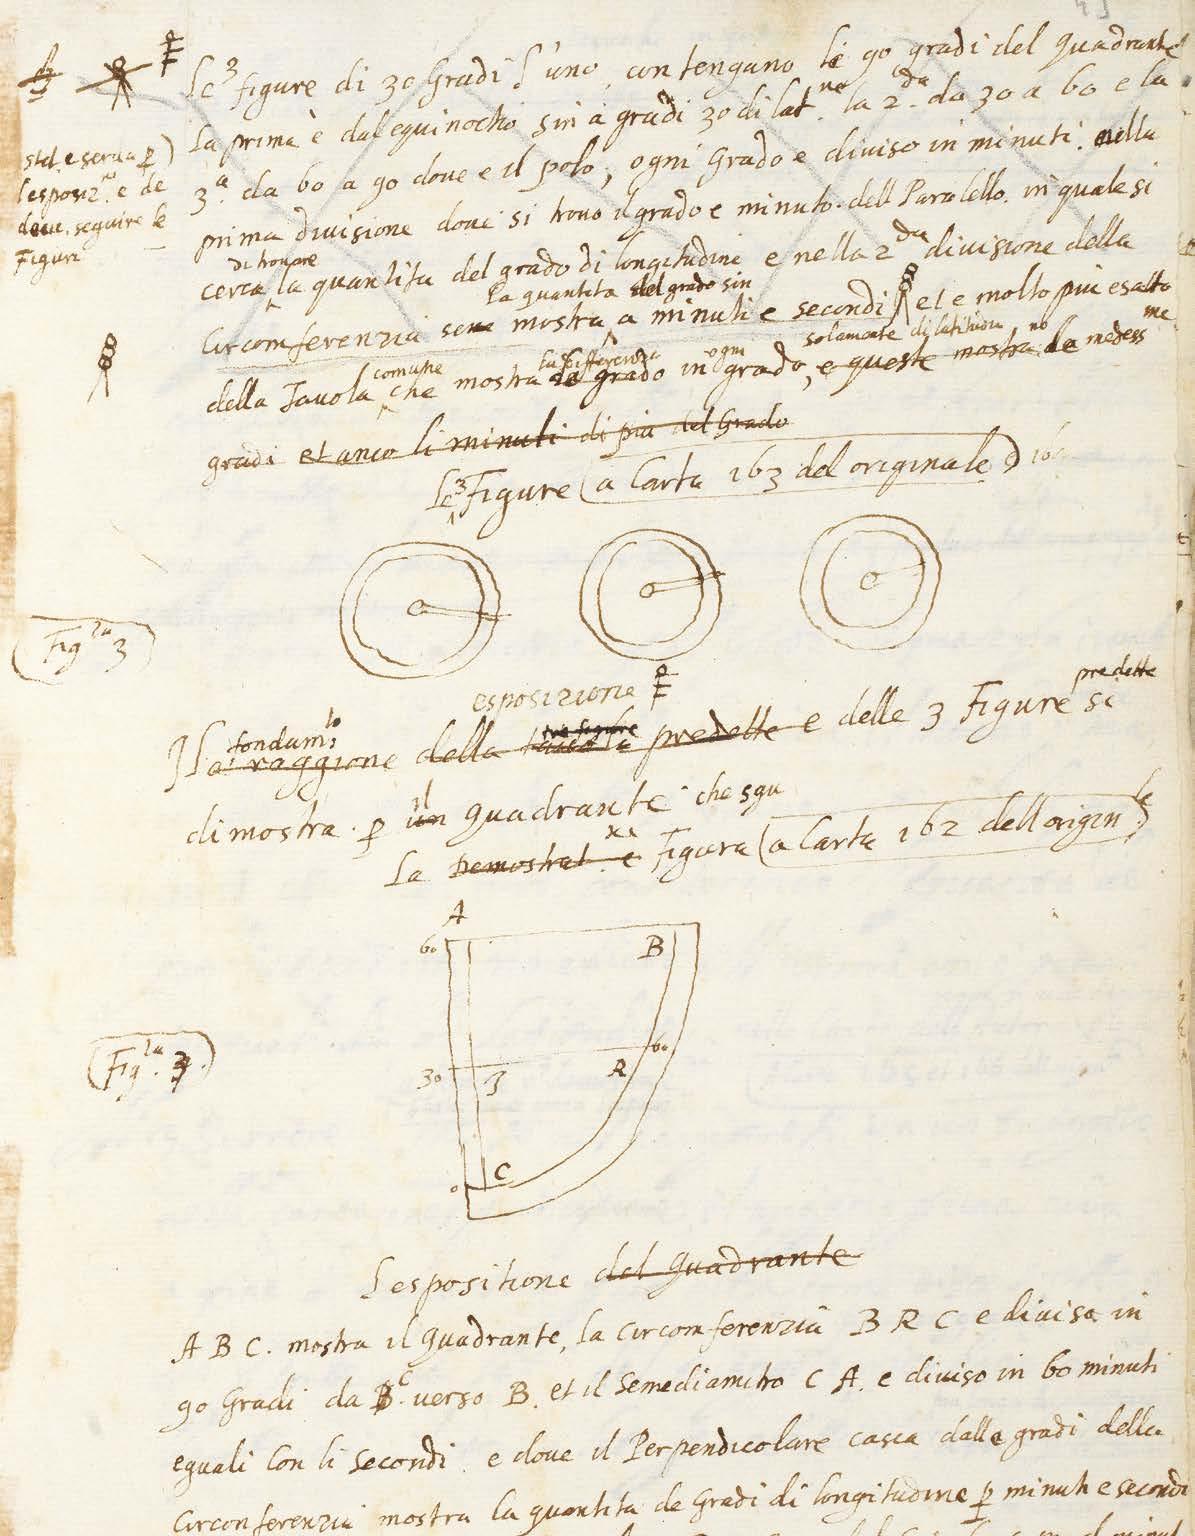 Le 3 figure di 30 Gradi l'uno, contengano le 90 gradi del Quadrante
La prima è dal equinoctio sin à gradi 30 di lat.ne la 2.da da 30 a 60 e la
3.a da 60 a 90 dove e il polo, ogni Grado e diviso in minuti. nella
l'esposiz.ne e de
seguire le
Figure
prima divisione dove si trova il grado e minuto dell Paralello. in quale si
di trovare
cerca la quantita del grado di longitudine e nella 2.da divisione della
La quantita del grado sin
Circomferenzia mostra a minuti e secondi et e molto piu esatta
solamente di latitudin no me
comune la differenza ogni
della Tavola che mostra grado in grado, e queste mostra le medess
gradi et anco li minuti di piu del Grado
Le 3 Figure (a Carta 163 del originale)
Fig.ra 3
esposizione
predette
fondam.to
La raggione della predette e delle 3 Figure si
dimostra p il quadrante che
La Figura (a Carta 162 dell origin.le)
A
60
B
60
30
3
R
C
0
Fig.ra 3.
L espositione del Quadrante
A B C. mostra il Quadrante, la Circomferenzia B R C e divisa in
90 Gradi da C verso B. et il Semediamitro C A. e diviso in 60 minuti
eguali Con li Secondi e dove il Perpendicolare casca dalle gradi della
Circonferenzia mostra la quantita de Gradi di longitudine p minuti e secondi